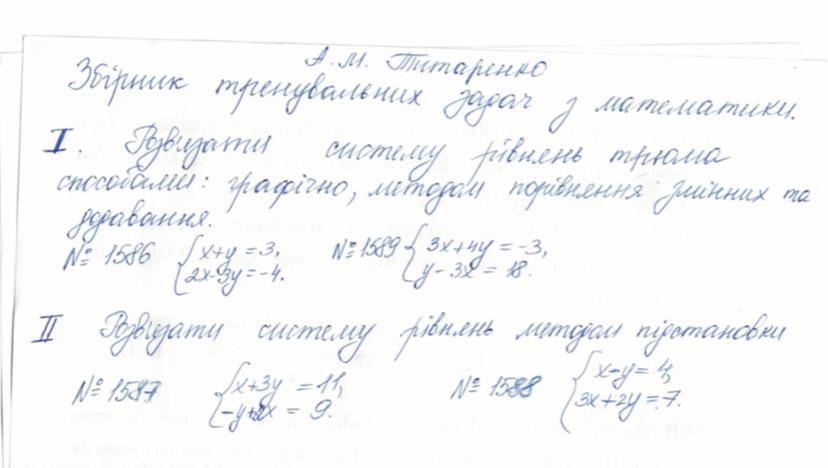 А.М. Титаренко
Збірник тренувальних задач з математики.
I. Розв'язати систему рівнень трьома
способами: графічно, методом порівнення змінних та
додавання.
№ 1586 { x+y=3, 2x-3y=-4. № 1589 { 3x+4y=-3, y-3x=18.
II Розв'язати систему рівнень методом підстановки
№ 1587 { x+3y=11, -y+2x=9. № 1588 { x-y=4, 3x+2y=7.